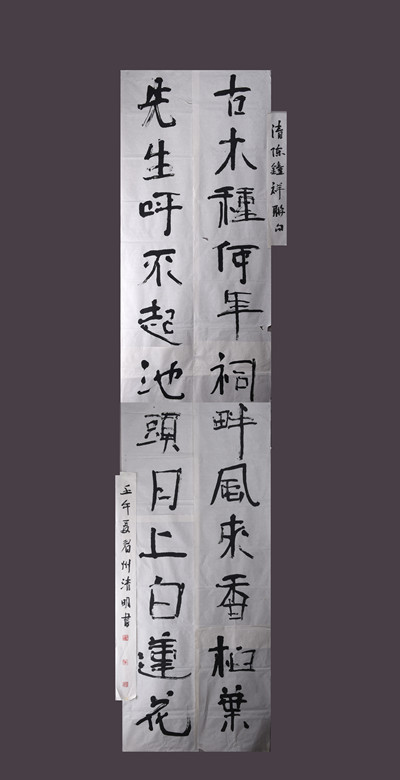 清陳鍾祥聯句
古木種何年祠畔風來香桕葉
先生呼不起池頭月上白蓮花
壬午夏眉州清明書